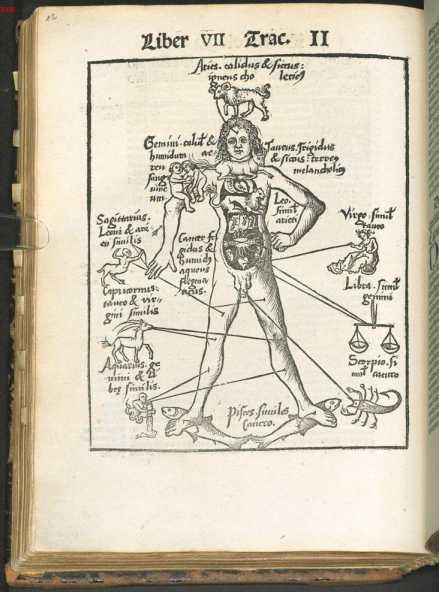 12
Liber VII Trac. II
Aries. calidus & siccus:
igneus cho lericꝰ
Gemini. calid' &
humidum ae
reu
sang
uine
um
Taurus. frigidus
& siccus: terreꝰ
melancholicꝰ
Leo.
simil'
arieti
Sagittarius.
Leoni & ari
eti similis
Cancer fri
gidus &
humidꝰ
aqueus
flegma
ticus.
Virgo. simil'
tauro
Capricornus:
tauro & vir-
gini similis
Libra. simil'
gemini
Aquarius. ge
mini & li
bre similis.
Scorpio. si
mil' cancro
Pisces. similes
Cancro.